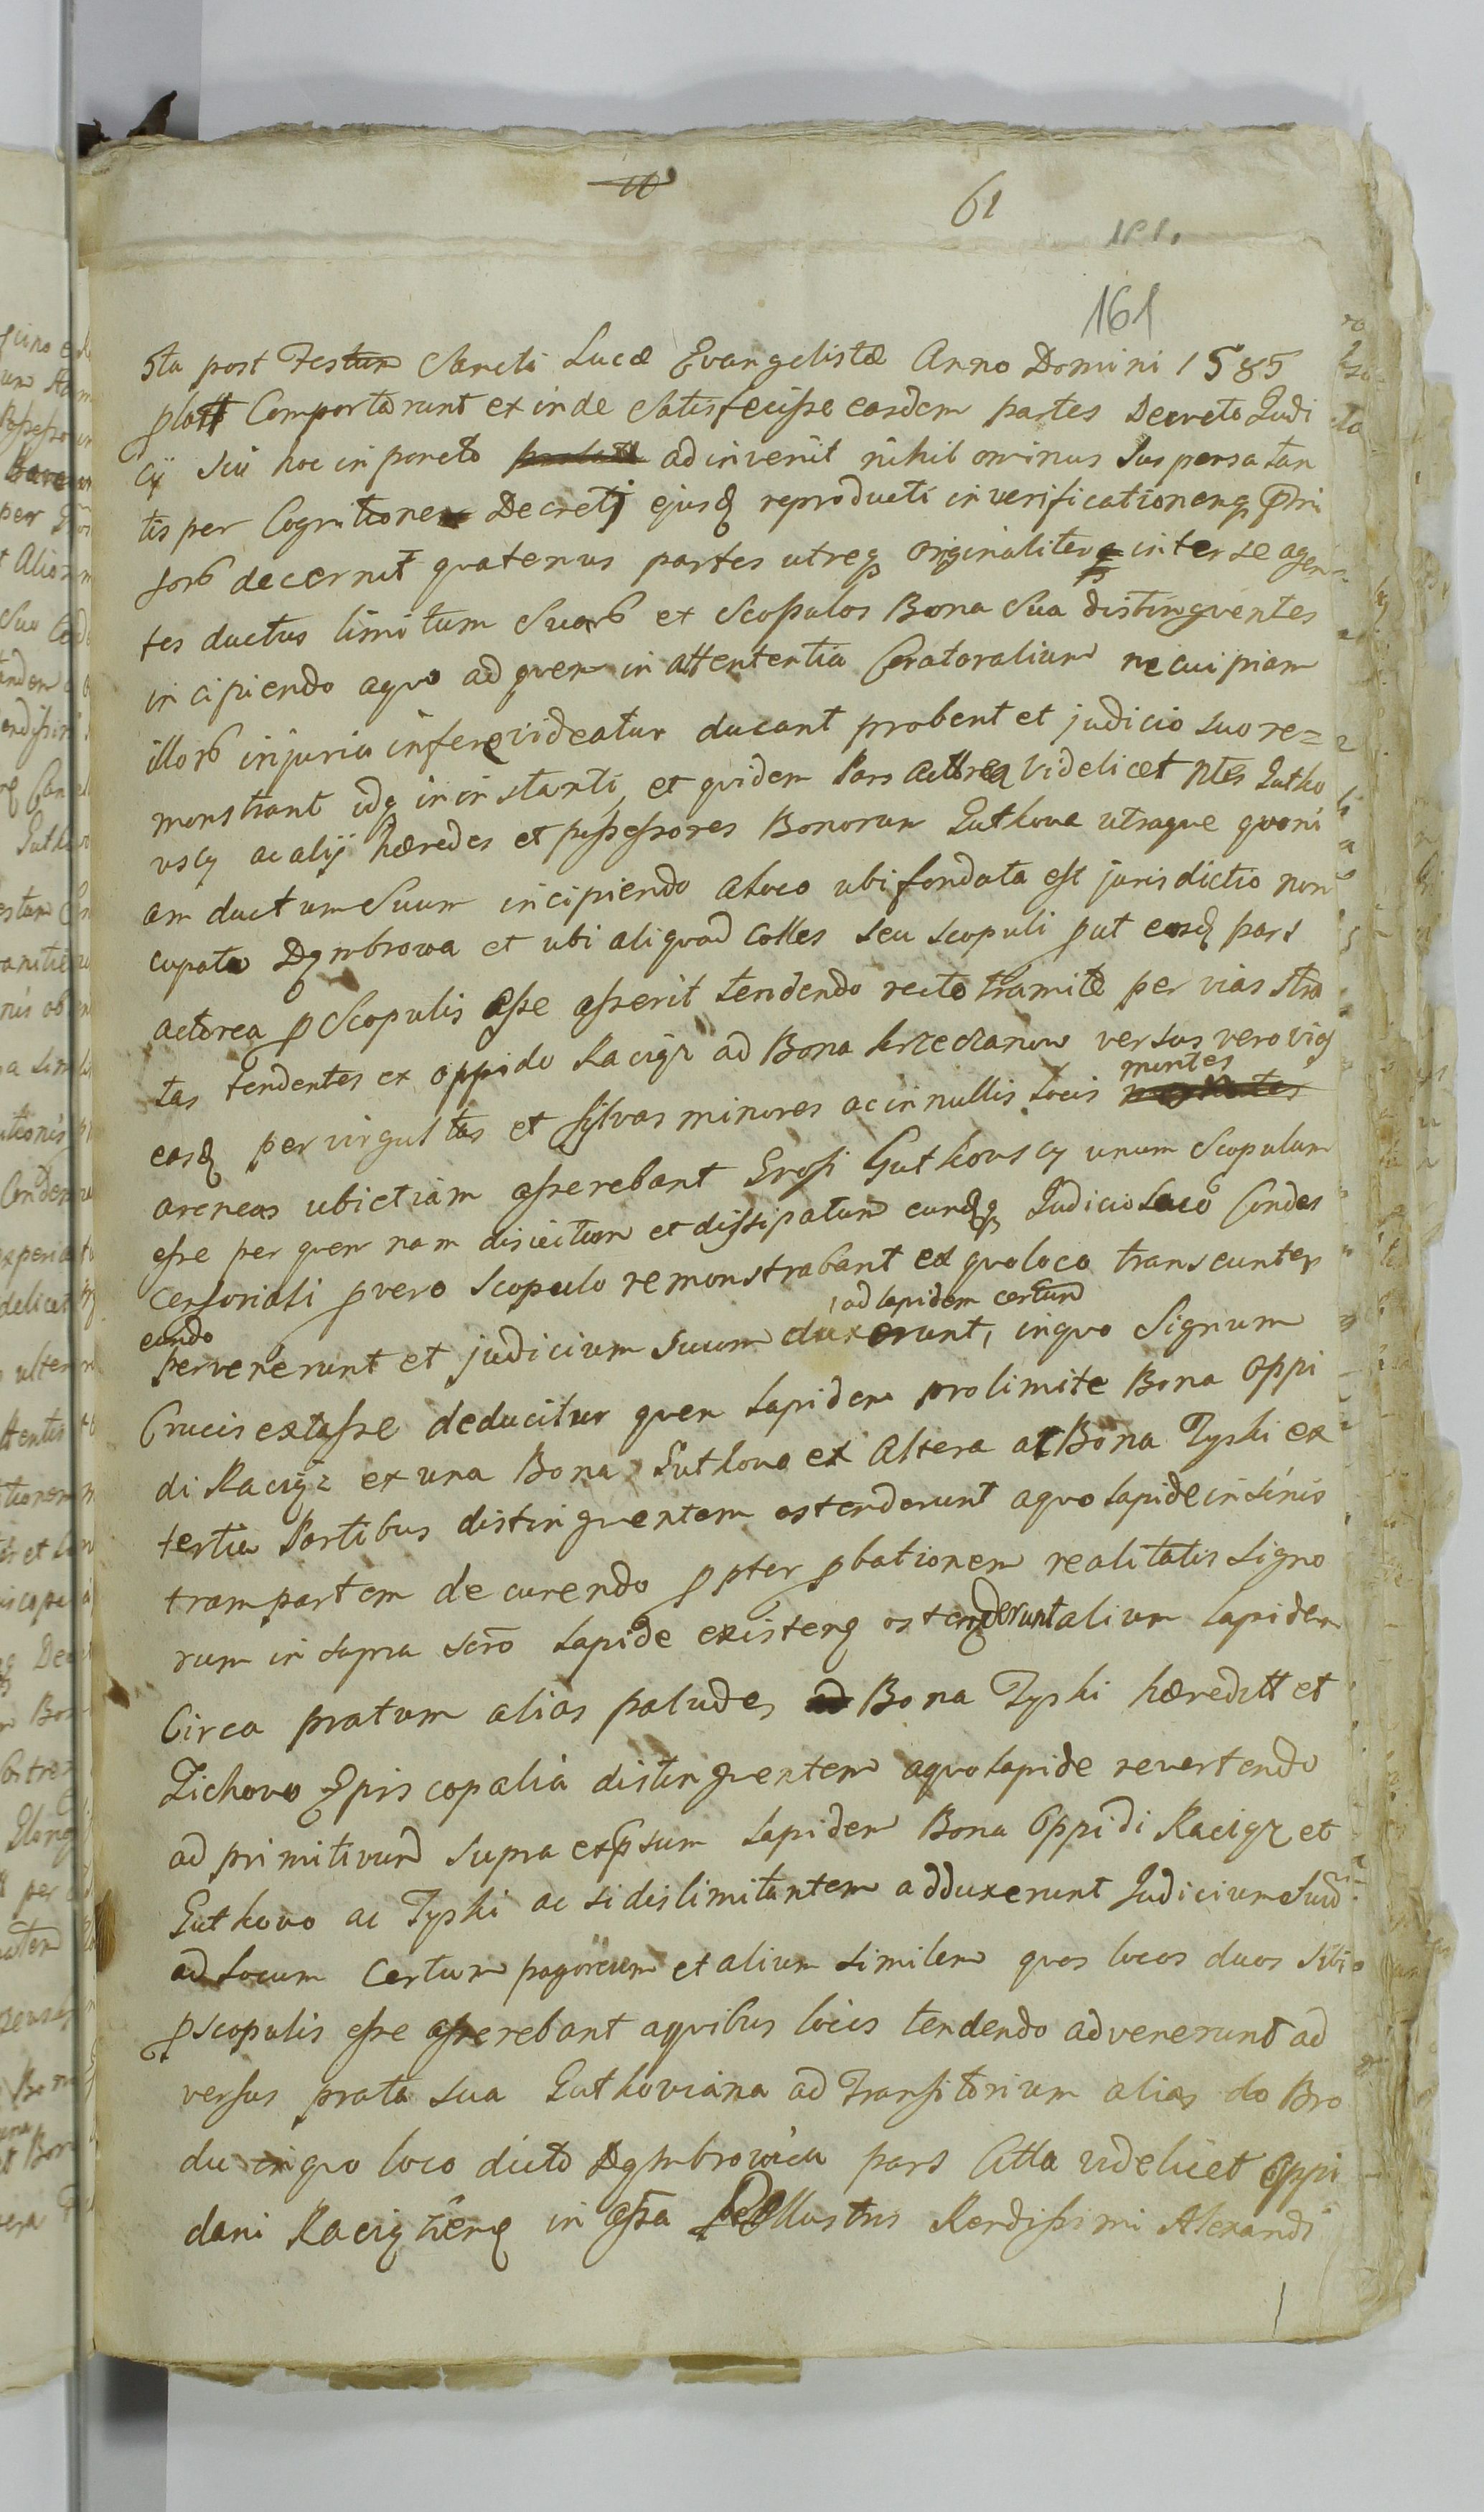 61
161
5ta post Festum Sancti Lucæ Evangelistæ Anno Domini 1585
platt Comportarunt ex inde Satisfecisse easdem partes Decreto Judi
cij Sui hoc in puncto adinvenit nihil ominus Suspensa tan
tis per Cognitione Decreti ejusq reproducti in verificationemq
decernit quatenus partes utreq Originaliter inter se agen
tes ductus limitum Suorb et Scopulos Bona Sua distingventes
incipiendo aquo ad quem in attententia Coratoralium ne cuipiam
illorb injuria inferri videatur ducant probent et judicio suo re=
monstrant idq in instanti, et quidem Pars Actorea Videlicet ntes Gutko
vscy ac alij hæredes et possessores Bonorum Gutkova utraque quoni
am ductum Suum incipiendo a loco ubi fondata est jurisdictio nun
cupata Dąmbrowa et ubi aliquod Colles seu scopuli put easd pars
actorea p Scopulis esse asserit tendendo recto tramite per vias stra
tas tendentes ex oppido Raciąz ad Bona Krzeczanow versus vero vias
easd per virgultas et sylvas minores ac in nullis locis montes
areneas ubi etiam asserebant Grosi Gutkovscy unum Scopulum
esse per quem nam disiectum et dissipatum eundq Judicio Suo Condes
censoriali p vero Scopulo remonstrabant ex quo loco transeuntes
eundo pervenerunt et judicium Suum duxerunt, ad lapidem certum inquo Signum
Crucis extasse deducitur quem lapidem pro limite Bona Oppi
di Raciąz ex una Bona Gutkovo ex Altera at Bona Tyski ex
tertia Partibus distingventem ostenderunt aquo lapide in sinis
tram partem decurendo ppter pbationem realitatis signo
rum in supra scro lapide existens ostenderunt alium lapidem
Circa pratum alias paludes Bona Tyski hæreditt et
Zichovo Episcopalia distingventem aquo lapide revertendo
ad primitivum supra expsum lapidem Bona Oppidi Raciąz et
Gutkovo ac Tyski ac si dislimitantem adduxerunt Judicium Suum
ad locum Certum pagorcum et alium similem quos locos duos sibi
p scopulis esse asserebant aquibus locis tendendo advenerunt ad
versus prata sua Gutkoviana ad Transitorium alias do Bro
du inquo loco dicto Dąmbrowica pars Citta videlicet Oppi
dani Raciązienq in assa Illustris Rendissimi Alexandi